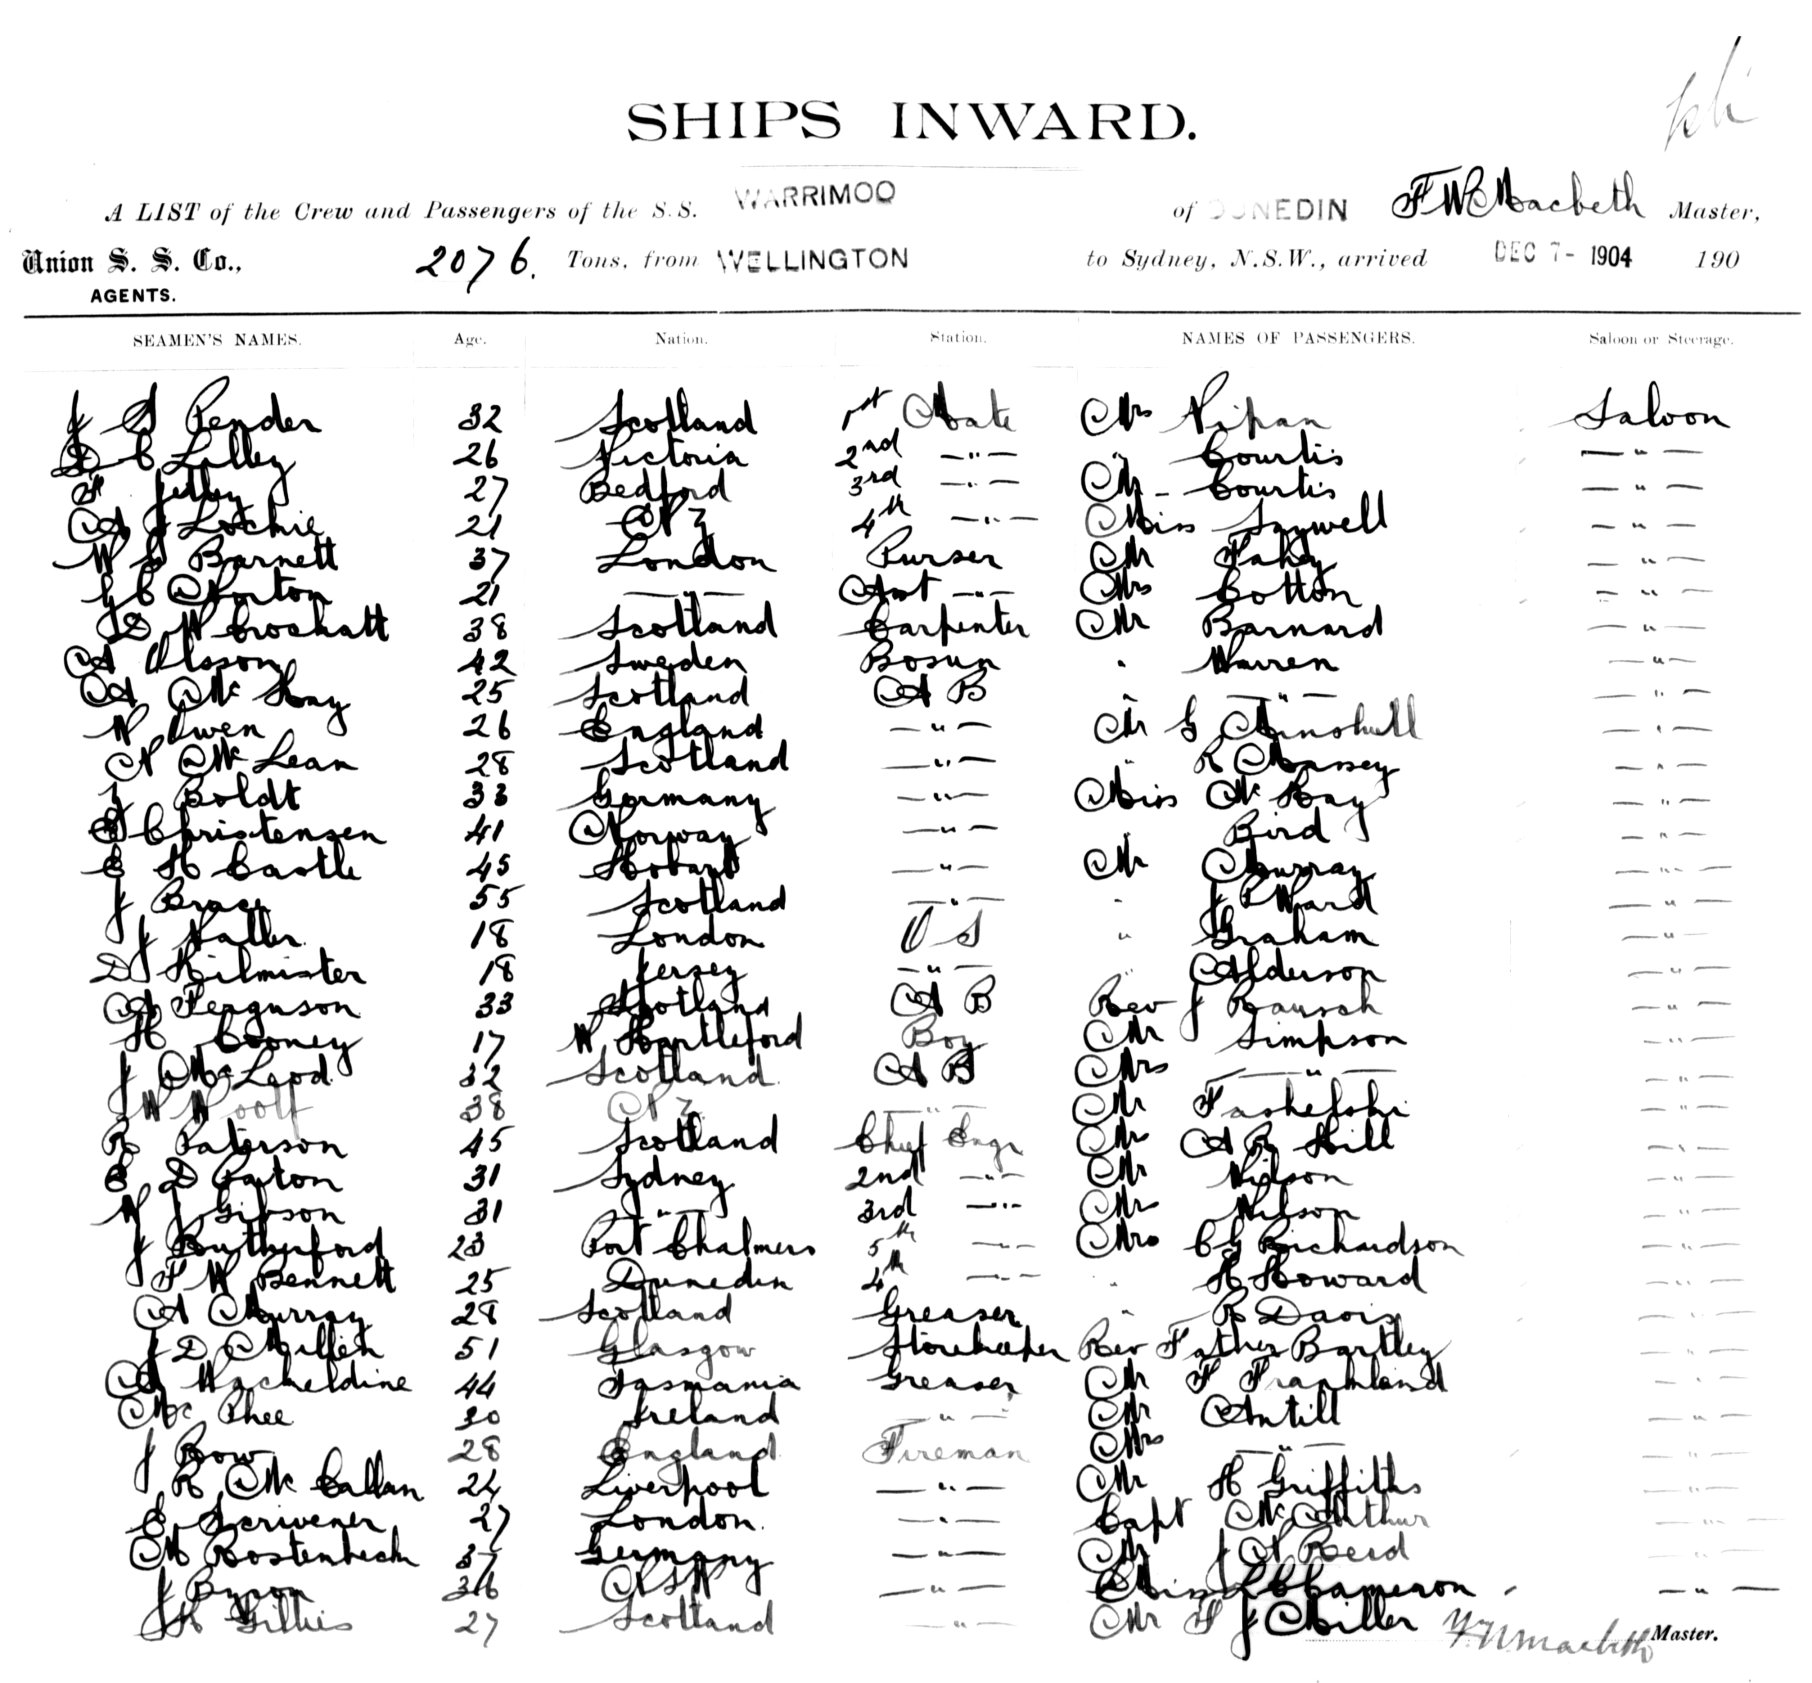 SHIPS INWARD.
A LIST of the Crew and Passengers of the S.S. WARRIMOO of DUNEDIN F W Macbeth Master,
Union S. S. Co., 2076. Tons, from WELLINGTON to Sydney, N.S.W., arrived DEC 7- 1904 190
AGENTS.
SEAMEN'S NAMES. Age. Nation. Station. NAMES OF PASSENGERS. Saloon or Steerage.
J S Pender 32 Scotland 1st Mate Mrs Saloon
D C Lilley 26 Victoria 2nd —"— " Courtis —"—
F Jetley 27 Bedford 3rd —"— Mr - Courtis —"—
A J Lochie 21 N Z 4th —"— Miss Saywell —"—
W G Barnett 37 London Purser Mr Fahey —"—
G C Norton 21 —"— Asst —"— Mrs Cotton —"—
D W Crockatt 38 Scotland Carpenter Mr Barnard —"—
A Olsson 42 Sweden Bosun " Warren —"—
A McKay 25 Scotland A B " —"— —"—
W Owen 26 England —"— Mr G Minshull —"—
N McLean 28 Scotland —"— " R Massey —"—
Boldt 33 Germany —"— Miss McKay —"—
Christensen 41 Norway —"— " Bird —"—
E H Castle 45 Hobart —"— Mr Murray —"—
J Brace 55 Scotland —"— " J P Ward —"—
J 18 London O S " Graham —"—
D J Kilmister 18 Jersey —"— " Alderson —"—
A Ferguson 33 Scotland A B Rev J Rausch —"—
H Cooney 17 W Hartleford Boy Mr Simpson —"—
J McLeod 32 Scotland A B Mrs —"— —"—
W Woolf 38 N Z —"— Mr —"—
R Paterson 45 Scotland Chief Engr Mr A R Hill —"—
E D Paton 31 Sydney 2nd —"— Mr Wilson —"—
W J Gibson 31 —"— 3rd —"— Mr Wilson —"—
J Rutherford 23 Port Chalmers 5th —"— Mrs C G Richardson —"—
F W Bennett 25 Dunedin 4th —"— " H Howard —"—
A Murray 28 Scotland Greaser " R Davis —"—
J D Millen 51 Glasgow Storekeeper Rev Father Bartley —"—
A Macheldine 44 Tasmania Greaser Mr F Frankland —"—
McPhee 30 Ireland —"— Mr Antill —"—
J Bow 28 England Fireman Mrs —"— —"—
R McCallan 24 Liverpool —"— Mr H Griffiths —"—
E Scrivener 27 London —"— Capt McArthur —"—
M Rostenbeck 37 Germany —"— Mr J N Reid —"—
J Byron 36 N S W —"— Miss L C Cameron —"—
H Gillies 27 Scotland —"— Mr F J Miller
F W Macbeth Master.